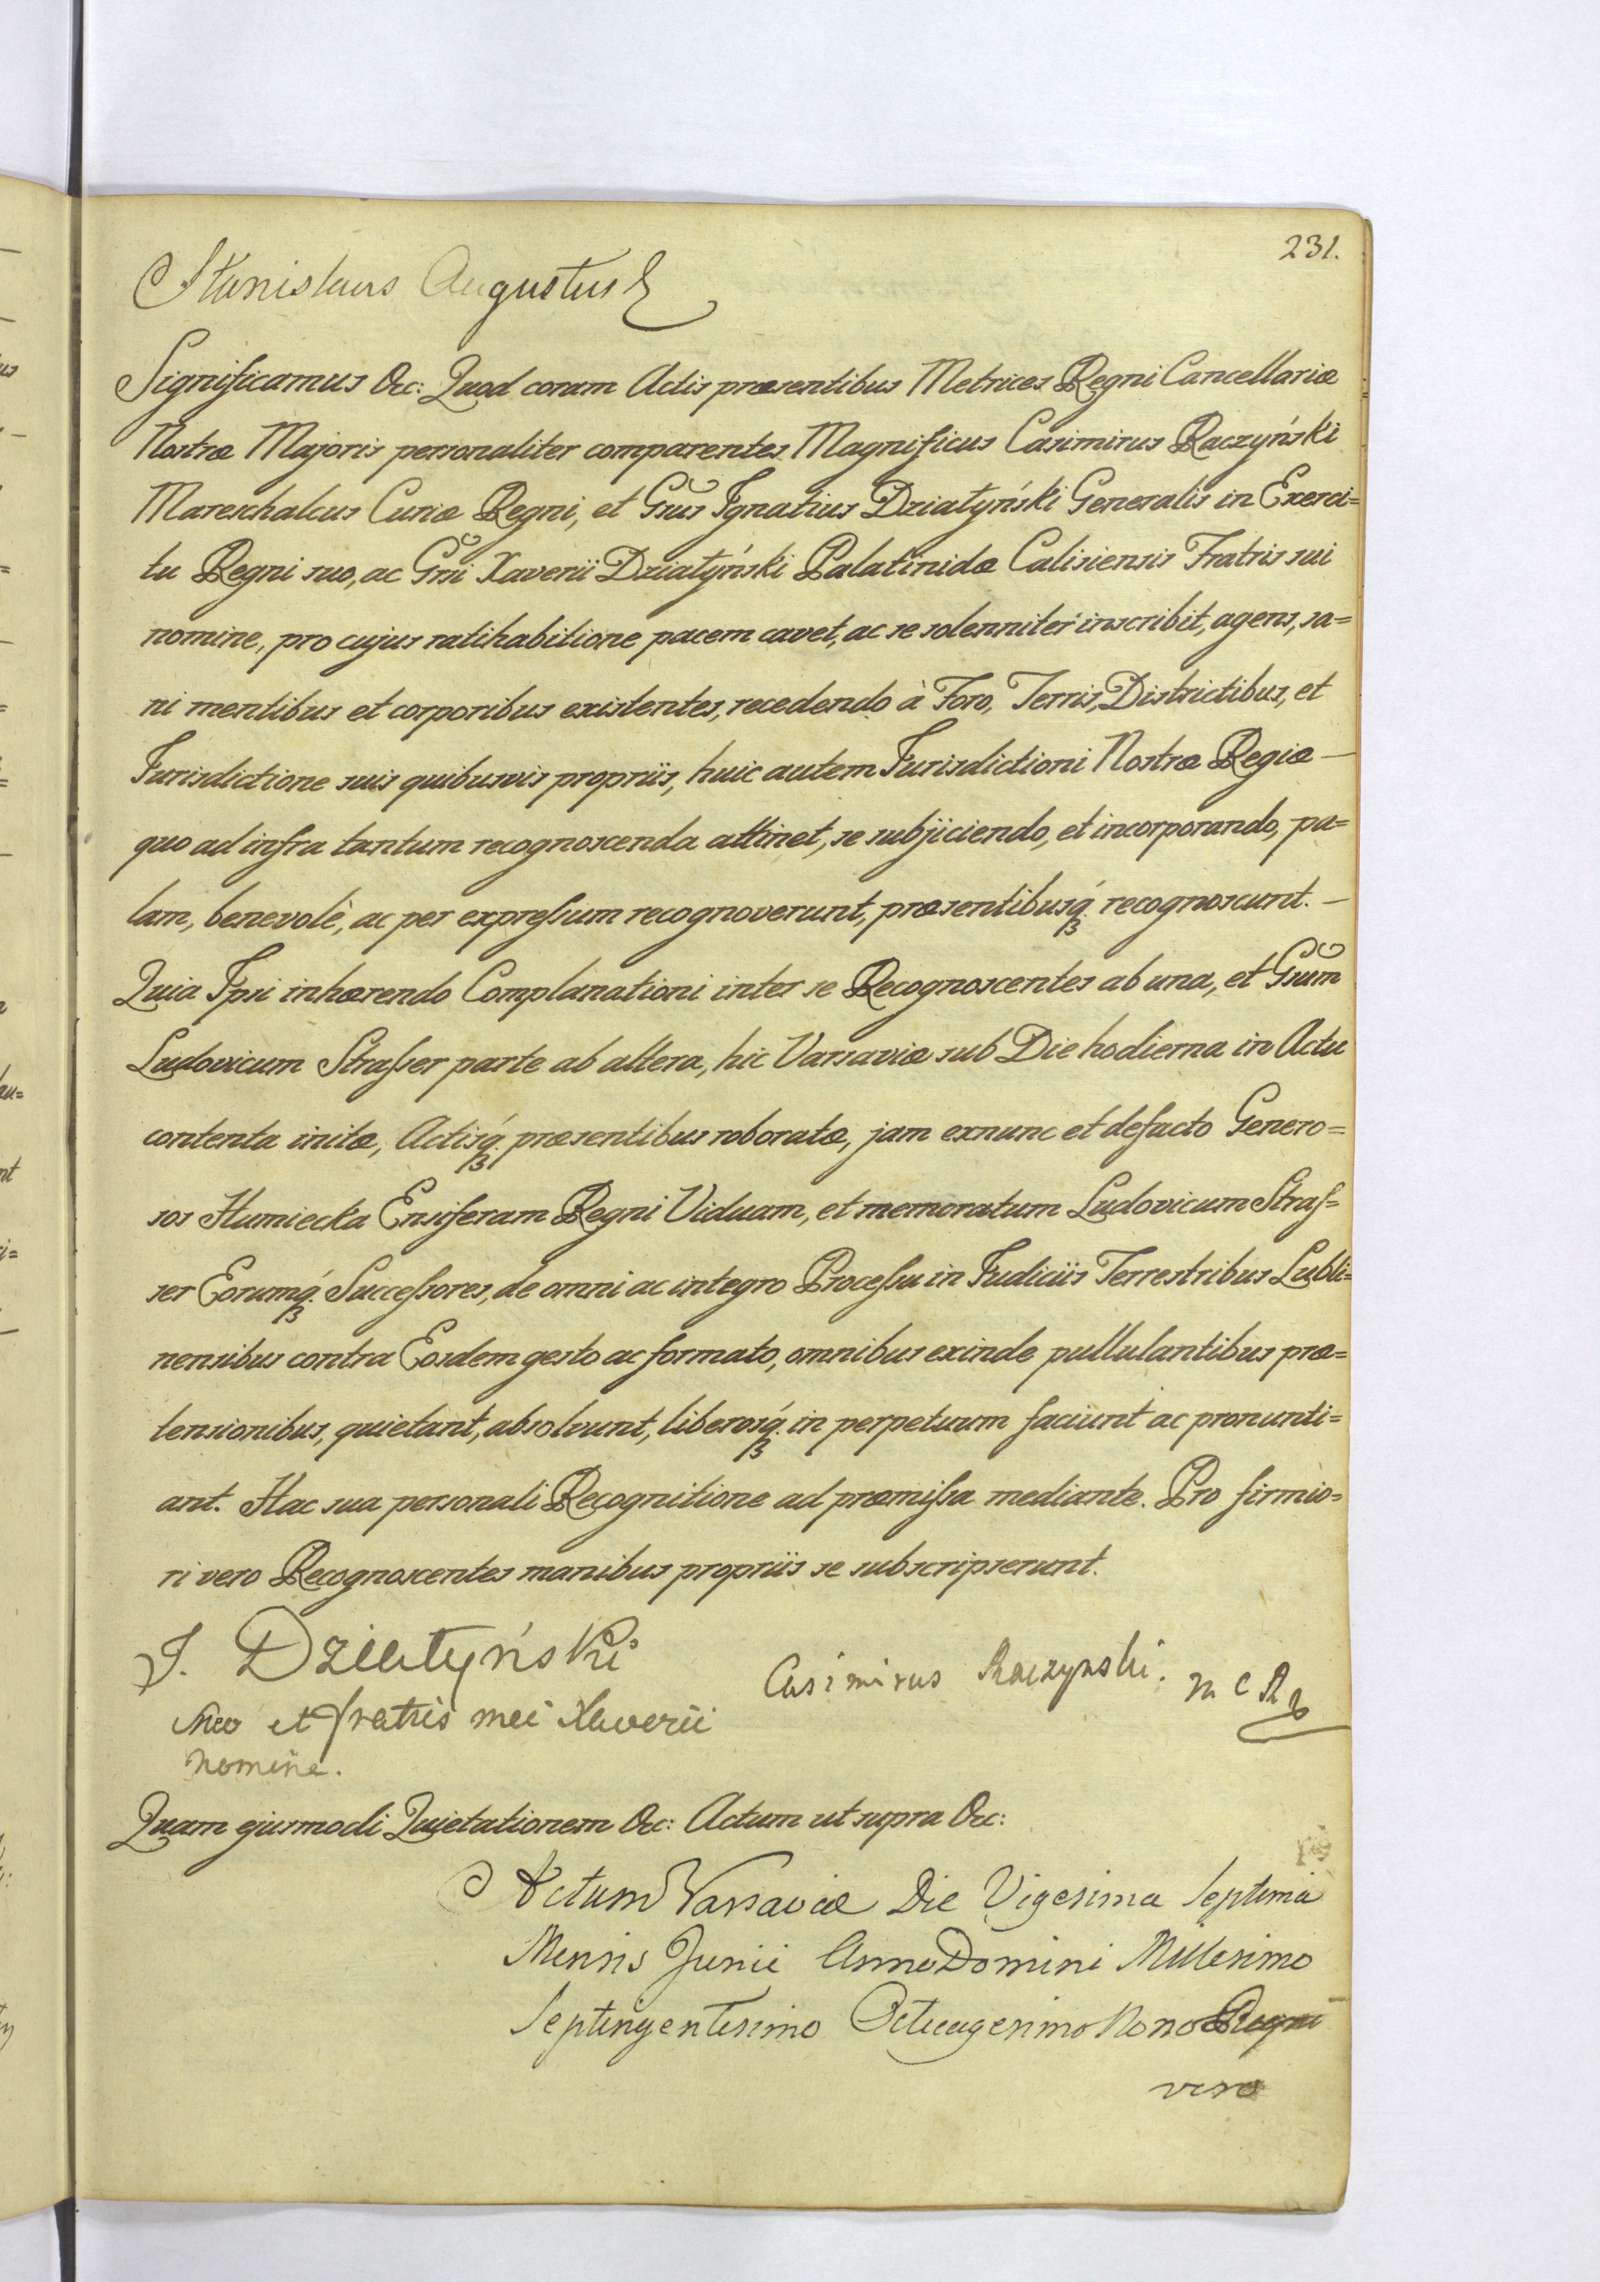 231.
Stanislaus Augustus &
Significamus &c: Quod coram Actis præsentibus Metrices Regni Cancellariæ
Nostræ Majoris personaliter comparentes Magnificus Casimirus Raczyński
Mareschalcus Curiæ Regni, et Gñsus Ignatius Działyński Generalis in Exerci=
tu Regni suo, ac Gñsi Xaverii Działyński Palatinidæ Calisiensis Fratris sui
nomine, pro cujus ratihabitione pacem cavet, ac se solenniter inscribit, agens, sa=
ni mentibus et corporibus existentes, recedendo à Foro, Terris, Districtibus, et
Jurisdictione suis quibusvis propriis, huic autem Jurisdictioni Nostræ Regiæ —
quo ad infra tantum recognoscenda attinet, se subjiciendo, et incorporando, pa=
lam, benevolè, ac per expressum recognoverunt, præsentibusq́ recognoscunt. —
Quia Ipsi inhærendo Complanationi inter se Recognoscentes ab una, et Gñsum
Ludovicum Strasser parte ab altera, hic Varsaviæ sub Die hodierna in Actu
contenta initæ, Actisq́ præsentibus roboratæ, jam exnunc et defacto Genero=
sos Humiecka Ensiferam Regni Viduam, et memoratum Ludovicum Stras=
ser Eorumq́ Successores, de omni ac integro Processu in Judiciis Terrestribus Lubli=
nensibus contra Eosdem gesto ac formato, omnibus exinde pullulantibus præ=
tensionibus, quietant, absolvunt, liberosq́ in perpetuum faciunt ac pronunti=
ant. Hac sua personali Recognitione ad præmissa mediante. Pro firmio=
ri vero Recognoscentes manibus propriis se subscripserunt.
J. Działyński
Casimirus Raczynski. M C R
Meo et fratris mei Xaverii
nomine.
Quam ejusmodi Quietationem &c: Actum ut supra &c:
Actum Varsaviæ Die Vigesima Septima
Mensis Junii Anno Domini Millesimo
Septingentesimo Octuagesimo Nono Regni
vero